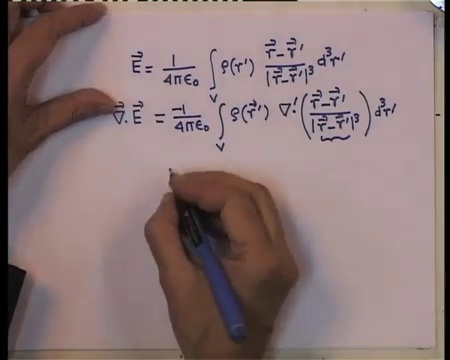 E⃗ = 1/4πϵ₀ ∫_V ρ(r') (r⃗ - r⃗')/|r⃗ - r⃗'|³ d³r'
∇⃗·E⃗ = -1/4πϵ₀ ∫_V ρ(r⃗') ∇'·((r⃗ - r⃗')/|r⃗ - r⃗'|³) d³r'